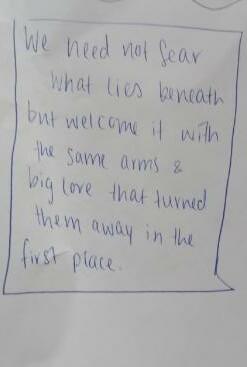 We need not fear
what lies beneath
but welcome it with
the same arms &
big love that turned
them away in the
first place.